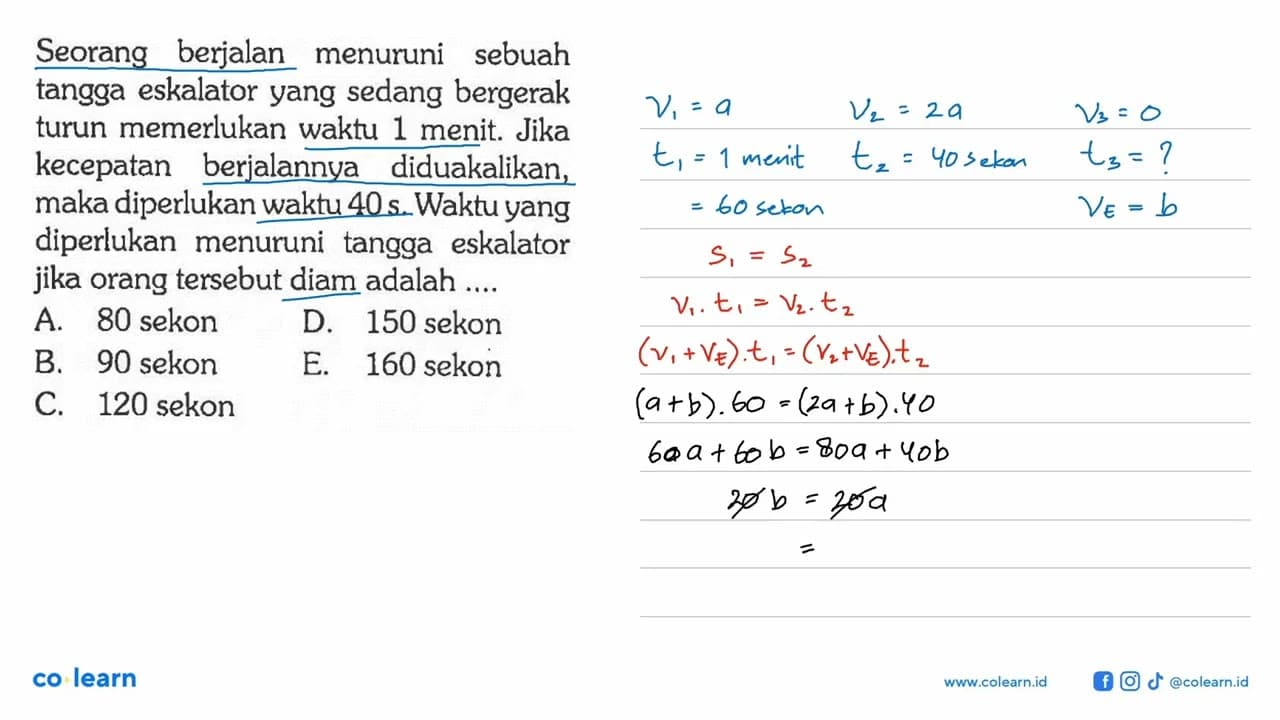 Seorang berjalan menuruni sebuah
tangga eskalator yang sedang bergerak
turun memerlukan waktu 1 menit. Jika
kecepatan berjalannya diduakalikan,
maka diperlukan waktu 40 s. Waktu yang
diperlukan menuruni tangga eskalator
jika orang tersebut diam adalah ....
A. 80 sekon D. 150 sekon
B. 90 sekon E. 160 sekon
C. 120 sekon
V₁ = a V₂ = 2a V₃ = 0
t₁ = 1 menit t₂ = 40 sekon t₃ = ?
= 60 sekon V_E = b
S₁ = S₂
V₁ . t₁ = V₂ . t₂
(V₁ + V_E) . t₁ = (V₂ + V_E) . t₂
(a + b) . 60 = (2a + b) . 40
60a + 60b = 80a + 40b
20b = 20a
=
co learn
www.colearn.id @colearn.id